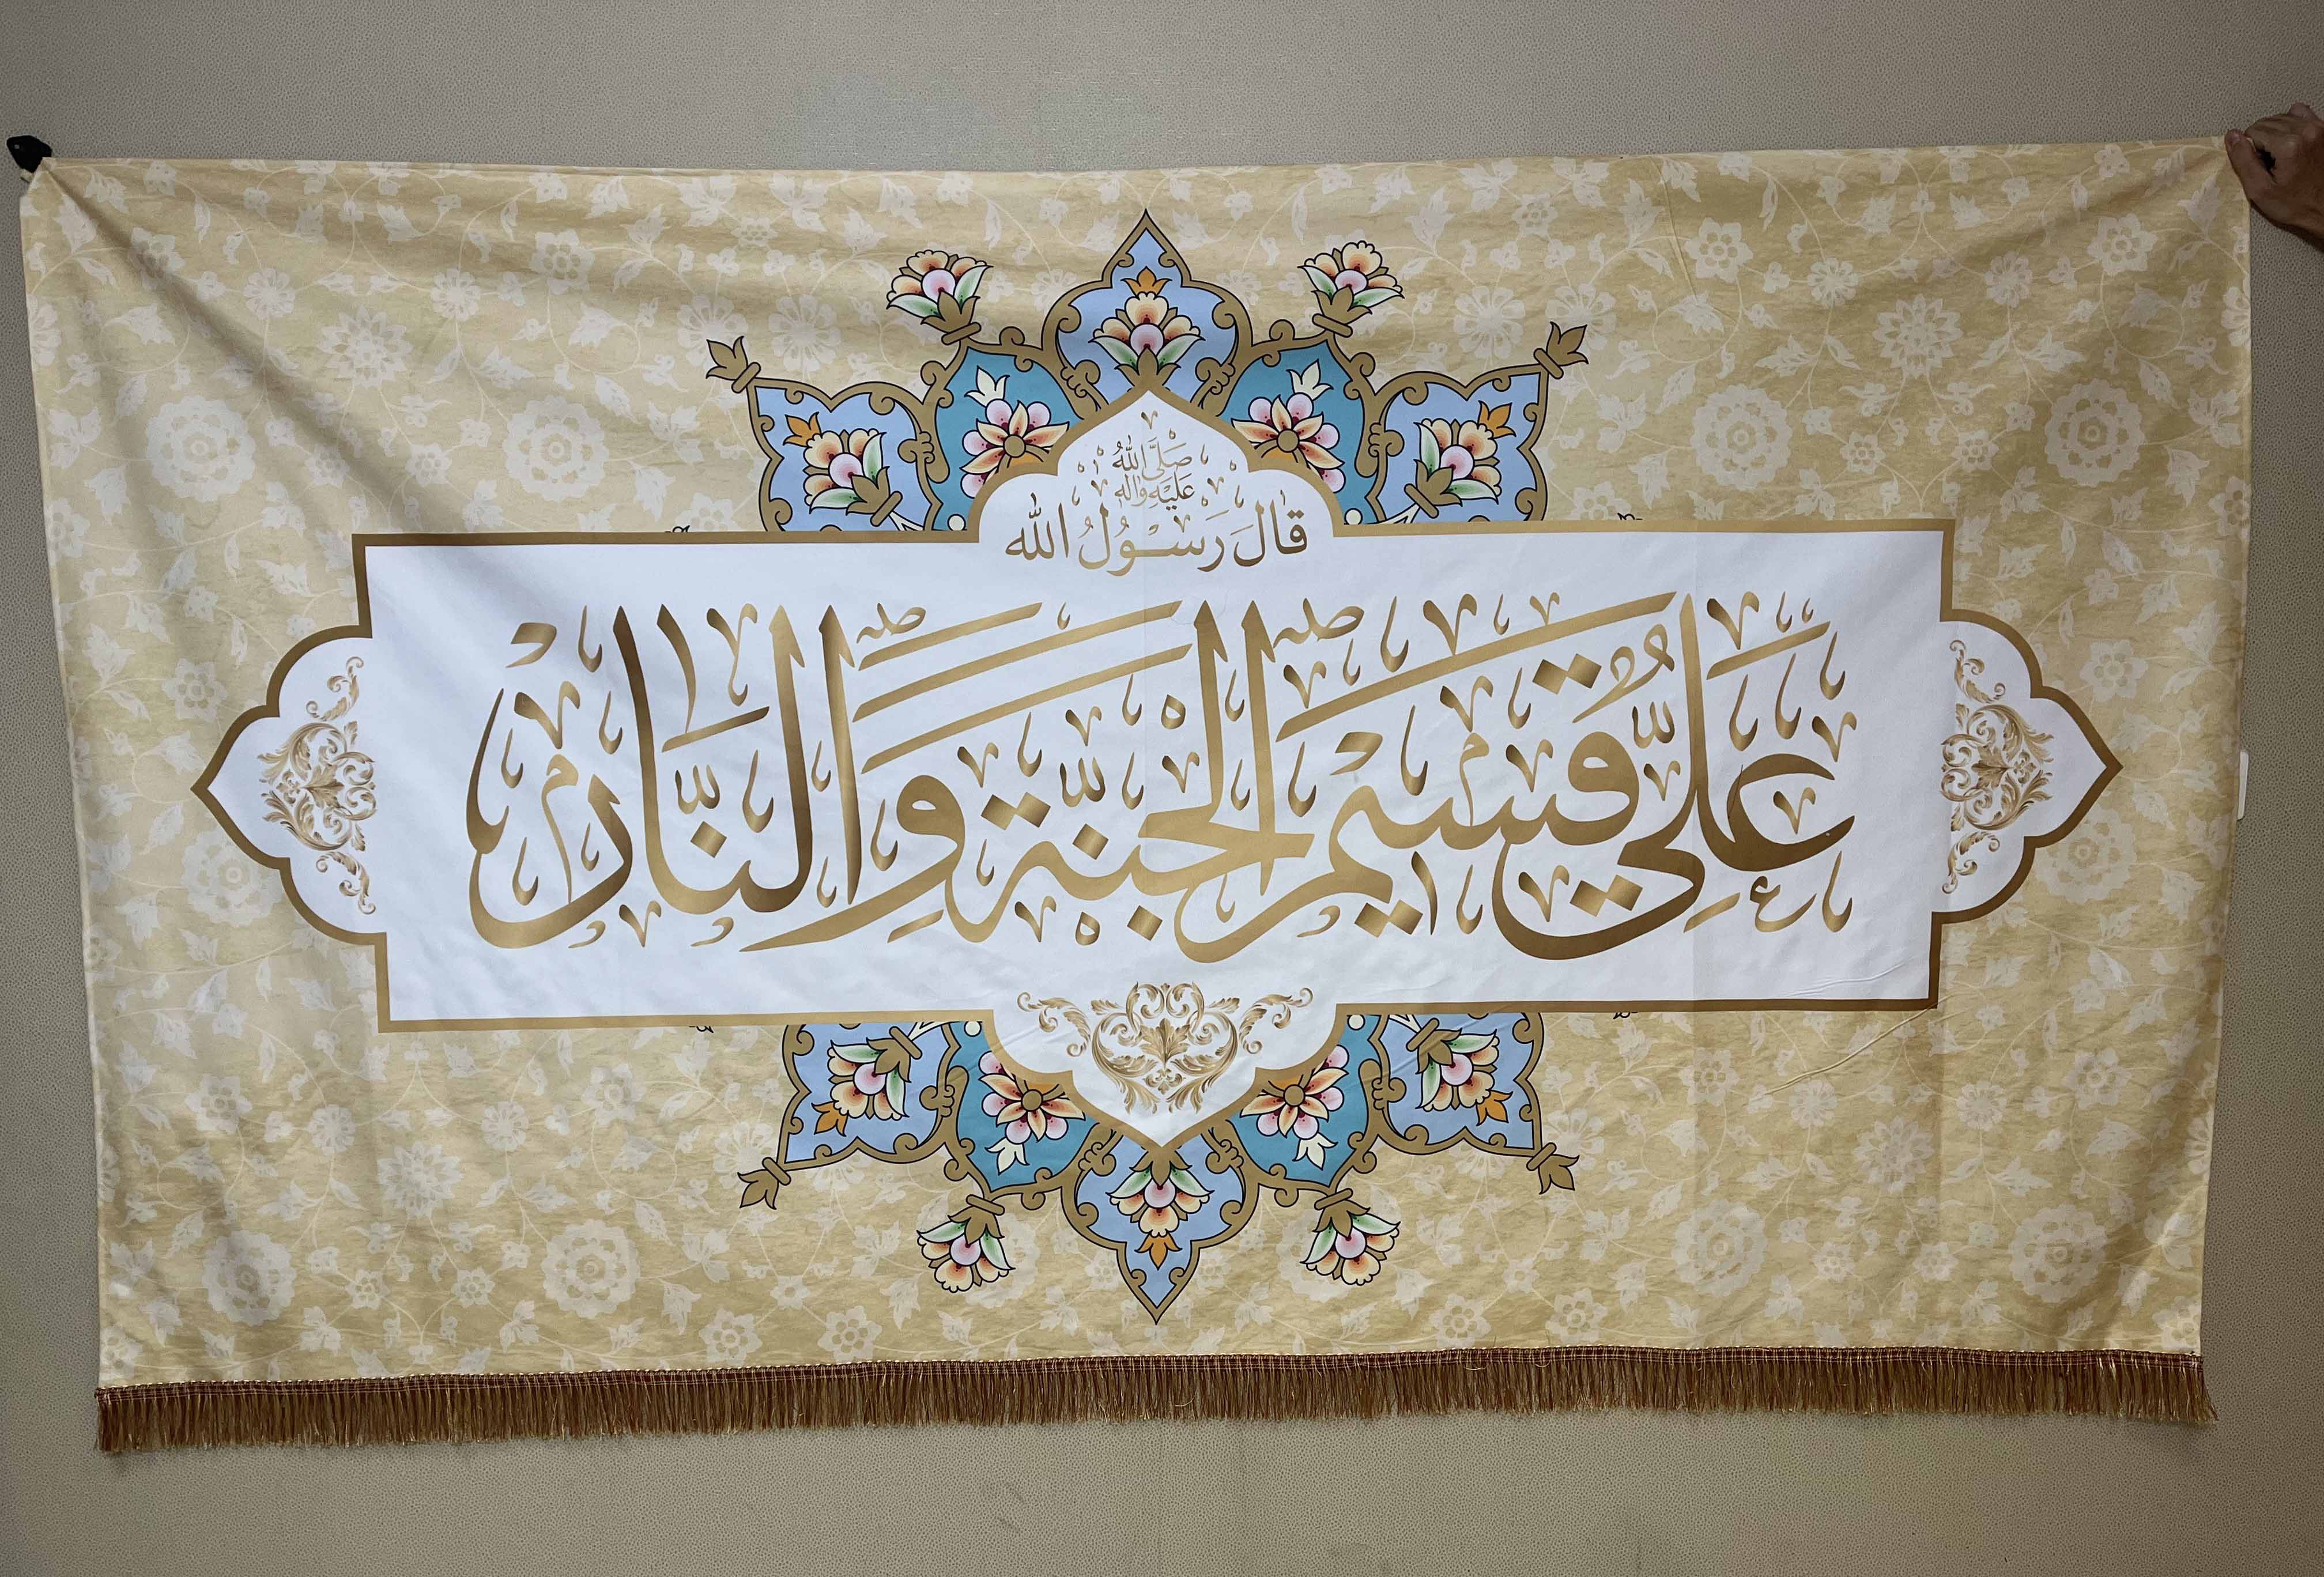 صَلَّى اللهُ
عَلَيْهِ وَآلِهِ
قَالَ رَسُولُ الله
عَلِيٌّ قَسِيمُ الْجَنَّةِ وَالنَّارِ